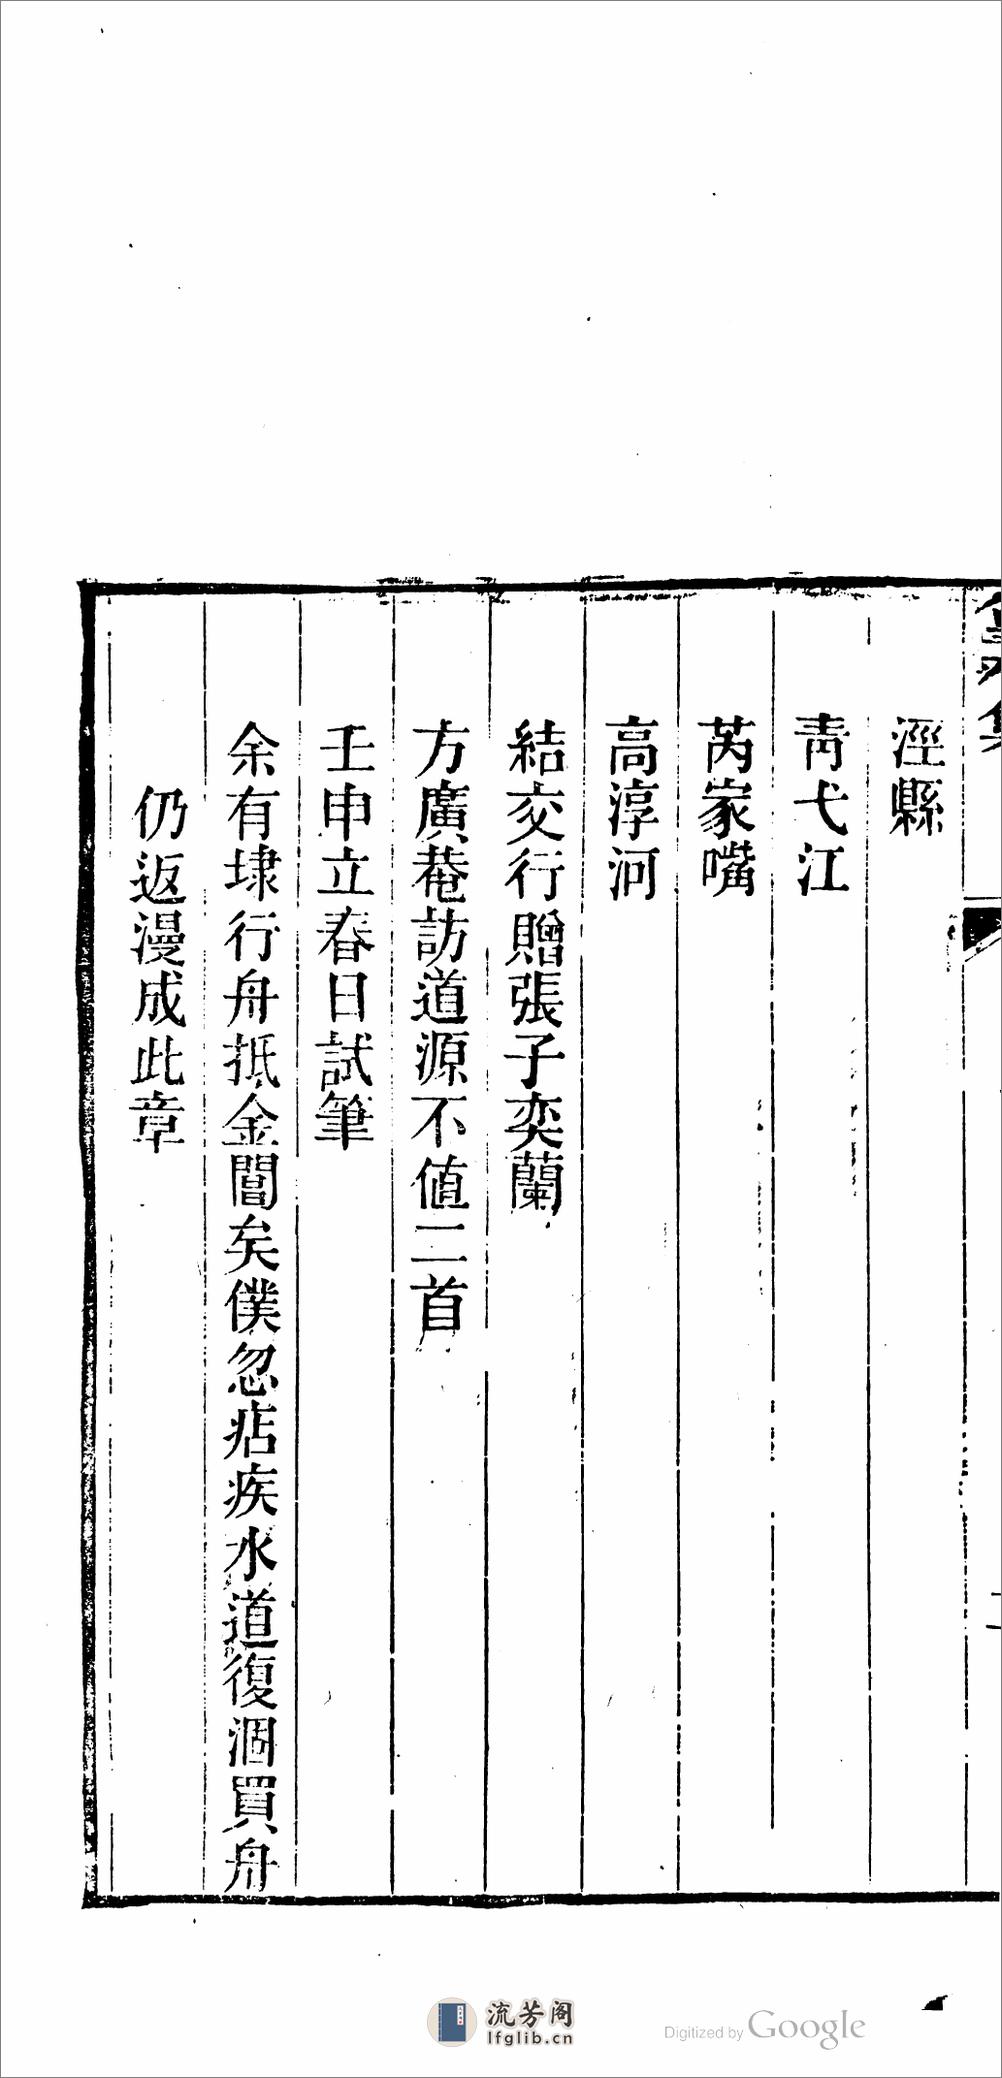 涇縣
靑弋江
芮家嘴
高淳河
結交行贈張子奕蘭
方廣菴訪道源不值二首
壬申立春日試筆
余有埭行舟抵金閶矣僕忽痁疾水道復涸買舟
仍返漫成此章
流芳阁
lfglib.cn
Digitized by Google